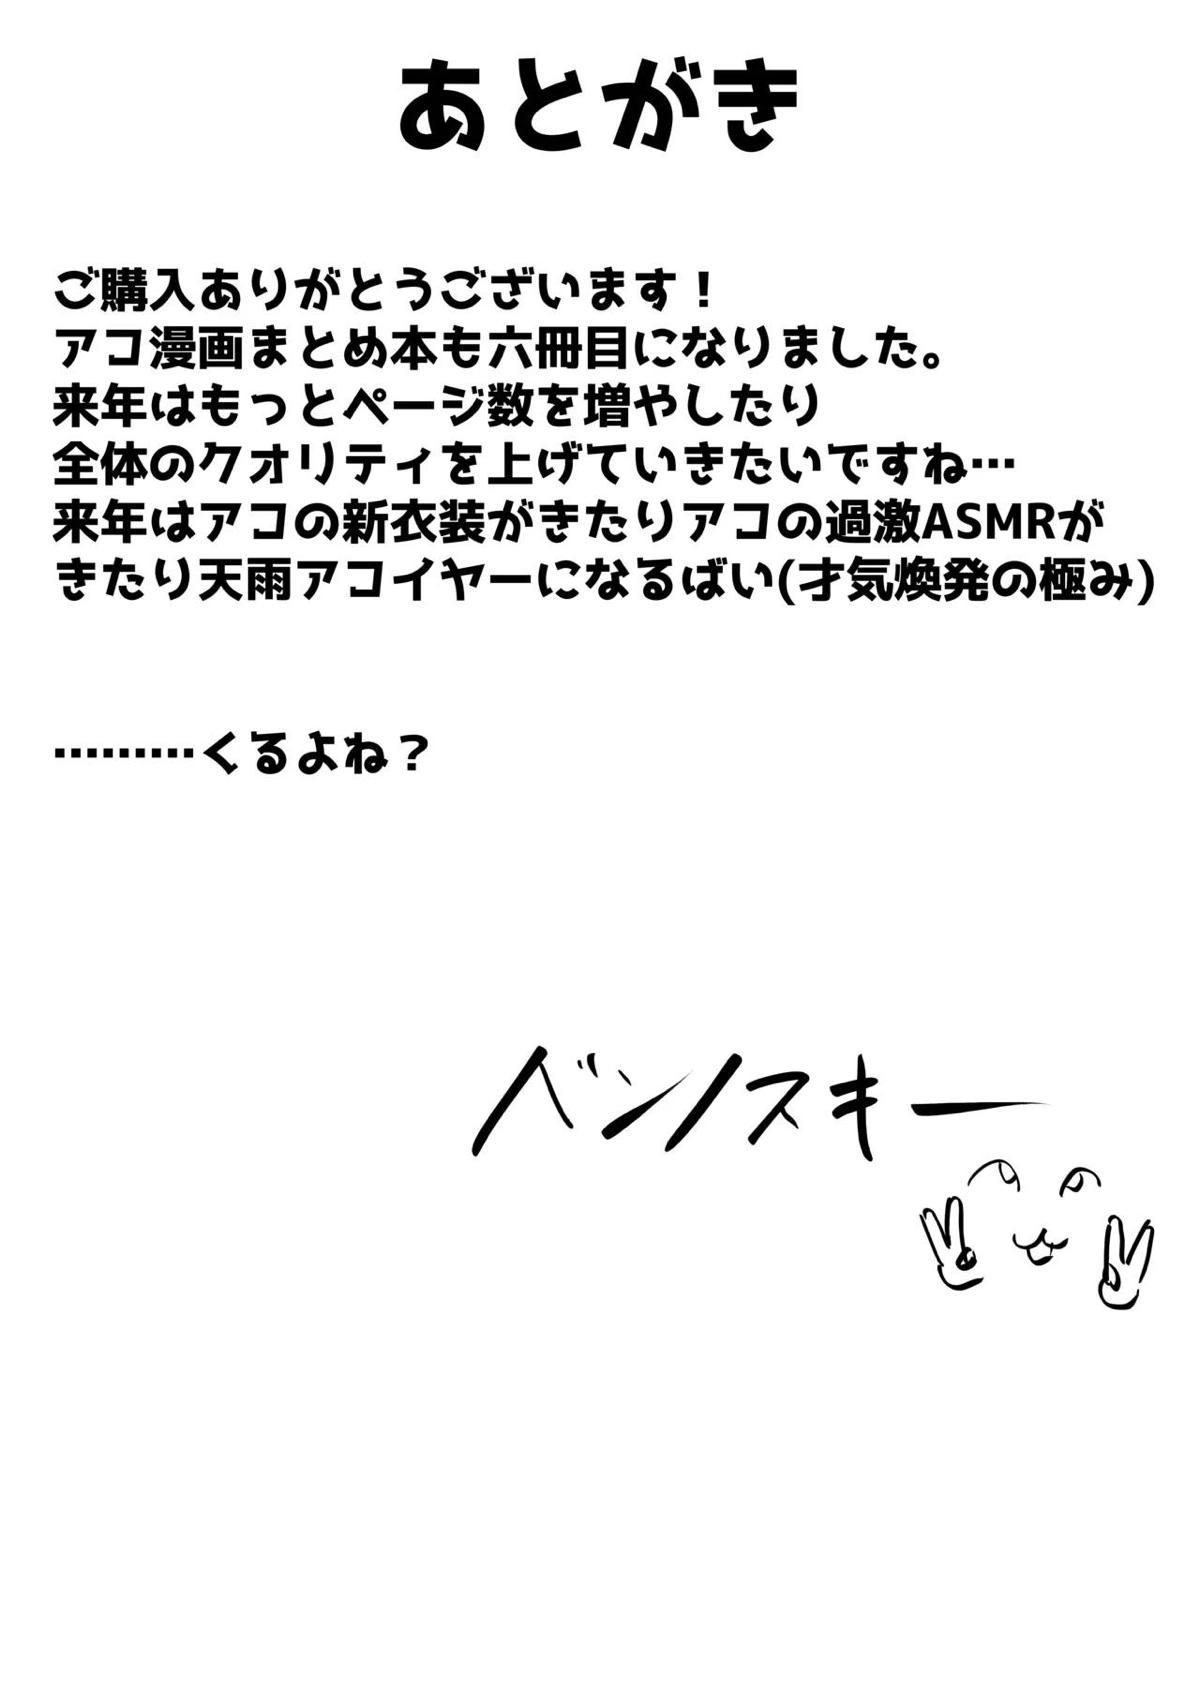 あとがき
ご購入ありがとうございます！
アコ漫画まとめ本も六冊目になりました。
来年はもっとページ数を増やしたり
全体のクオリティを上げていきたいですね…
来年はアコの新衣装がきたりアコの過激ASMRが
きたり天雨アコイヤーになるばい(才気煥発の極み)
………くるよね？
ベンノスキー